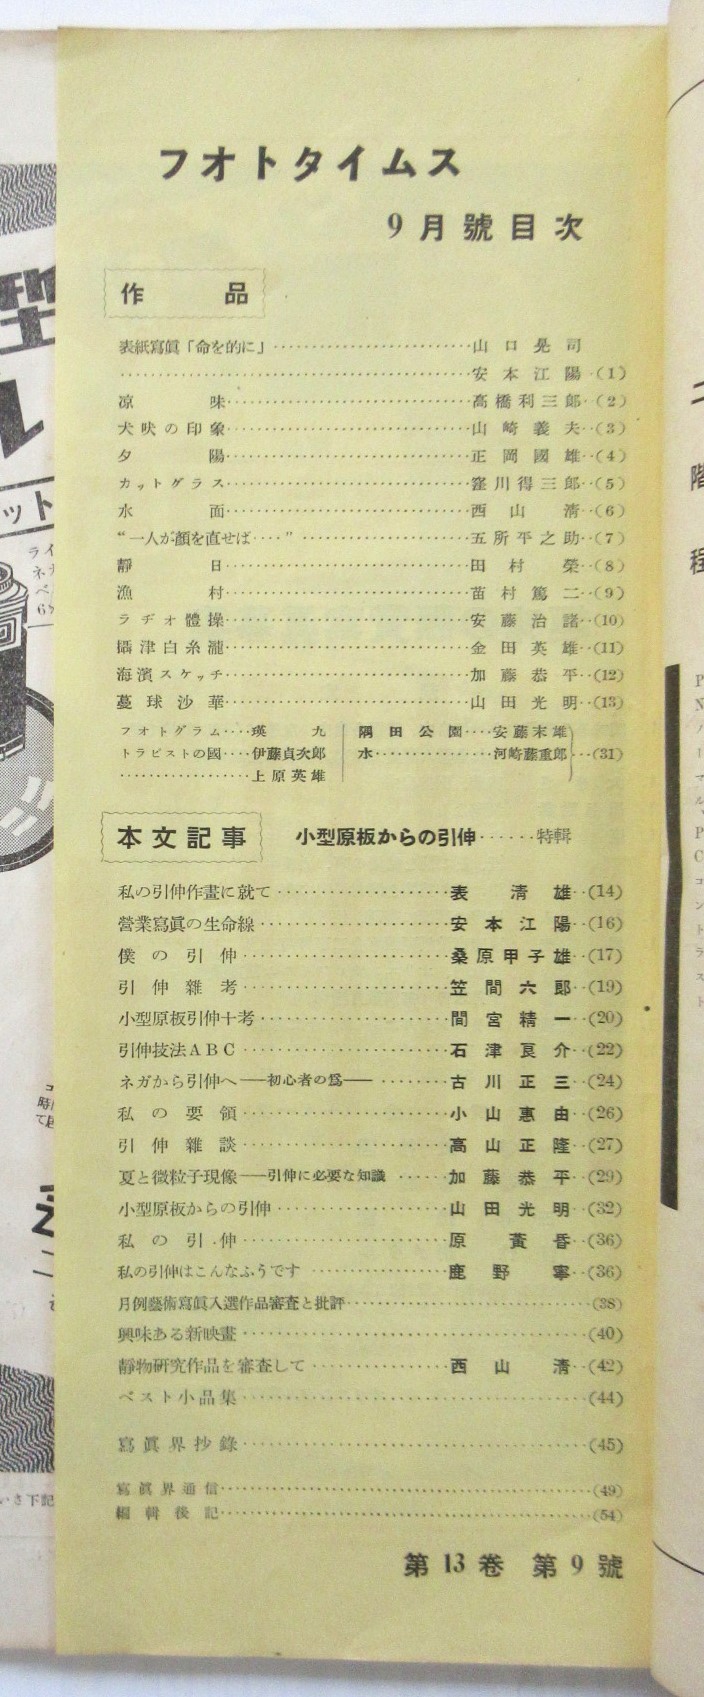 フオトタイムス
9月號目次
作品
表紙寫眞「命を的に」……山口晃司
……安本江陽…(1)
凉味……高橋利三郎…(2)
犬吠の印象……山崎義夫…(3)
夕陽……正岡國雄…(4)
カットグラス……窪川得三郎…(5)
水面……西山清…(6)
“一人が顏を直せば‥‥”……五所平之助…(7)
靜日……田村榮…(8)
漁村……苗村篤二…(9)
ラヂオ體操……安藤治諸…(10)
攝津白糸瀧……金田英雄…(11)
海濱スケッチ……加藤恭平…(12)
蔓球沙華……山田光明…(13)
フォトグラム‥‥瑛九
トラピストの國‥‥伊藤貞次郎
……上原英雄
隅田公園‥‥安藤末雄
水……河崎藤重郎…(31)
本文記事
小型原板からの引伸……特輯
私の引伸作畫に就て……表清雄…(14)
營業寫眞の生命線……安本江陽…(16)
僕の引伸……桑原甲子雄…(17)
引伸雜考……笠間六郎…(19)
小型原板引伸十考……間宮精一…(20)
引伸技法ABC……石津良介…(22)
ネガから引伸へ――初心者の爲――……古川正三…(24)
私の要領……小山惠由…(26)
引伸雜談……高山正隆…(27)
夏と微粒子現像――引伸に必要な知識……加藤恭平…(29)
小型原板からの引伸……山田光明…(32)
私の引伸……原黃昏…(36)
私の引伸はこんなふうです……鹿野寧…(36)
月例藝術寫眞入選作品審査と批評……(38)
興味ある新映畫……(40)
靜物研究作品を審査して……西山清…(42)
ベスト小品集……(44)
寫眞界抄錄……(45)
寫眞界通信……(49)
編輯後記……(54)
第13卷 第9號
ット
ライ
ネガ
いさ下記
階
程
P
N
ノ
ー
マ
ル
、
P
C
コ
ン
ト
ラ
ス
ト